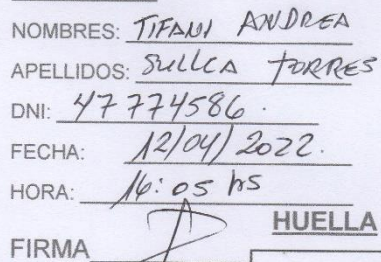 NOMBRES: TIFANI ANDREA
APELLIDOS: SULLCA TORRES
DNI: 47774586.
FECHA: 12/04/2022.
HORA: 16:05 hs
HUELLA
FIRMA